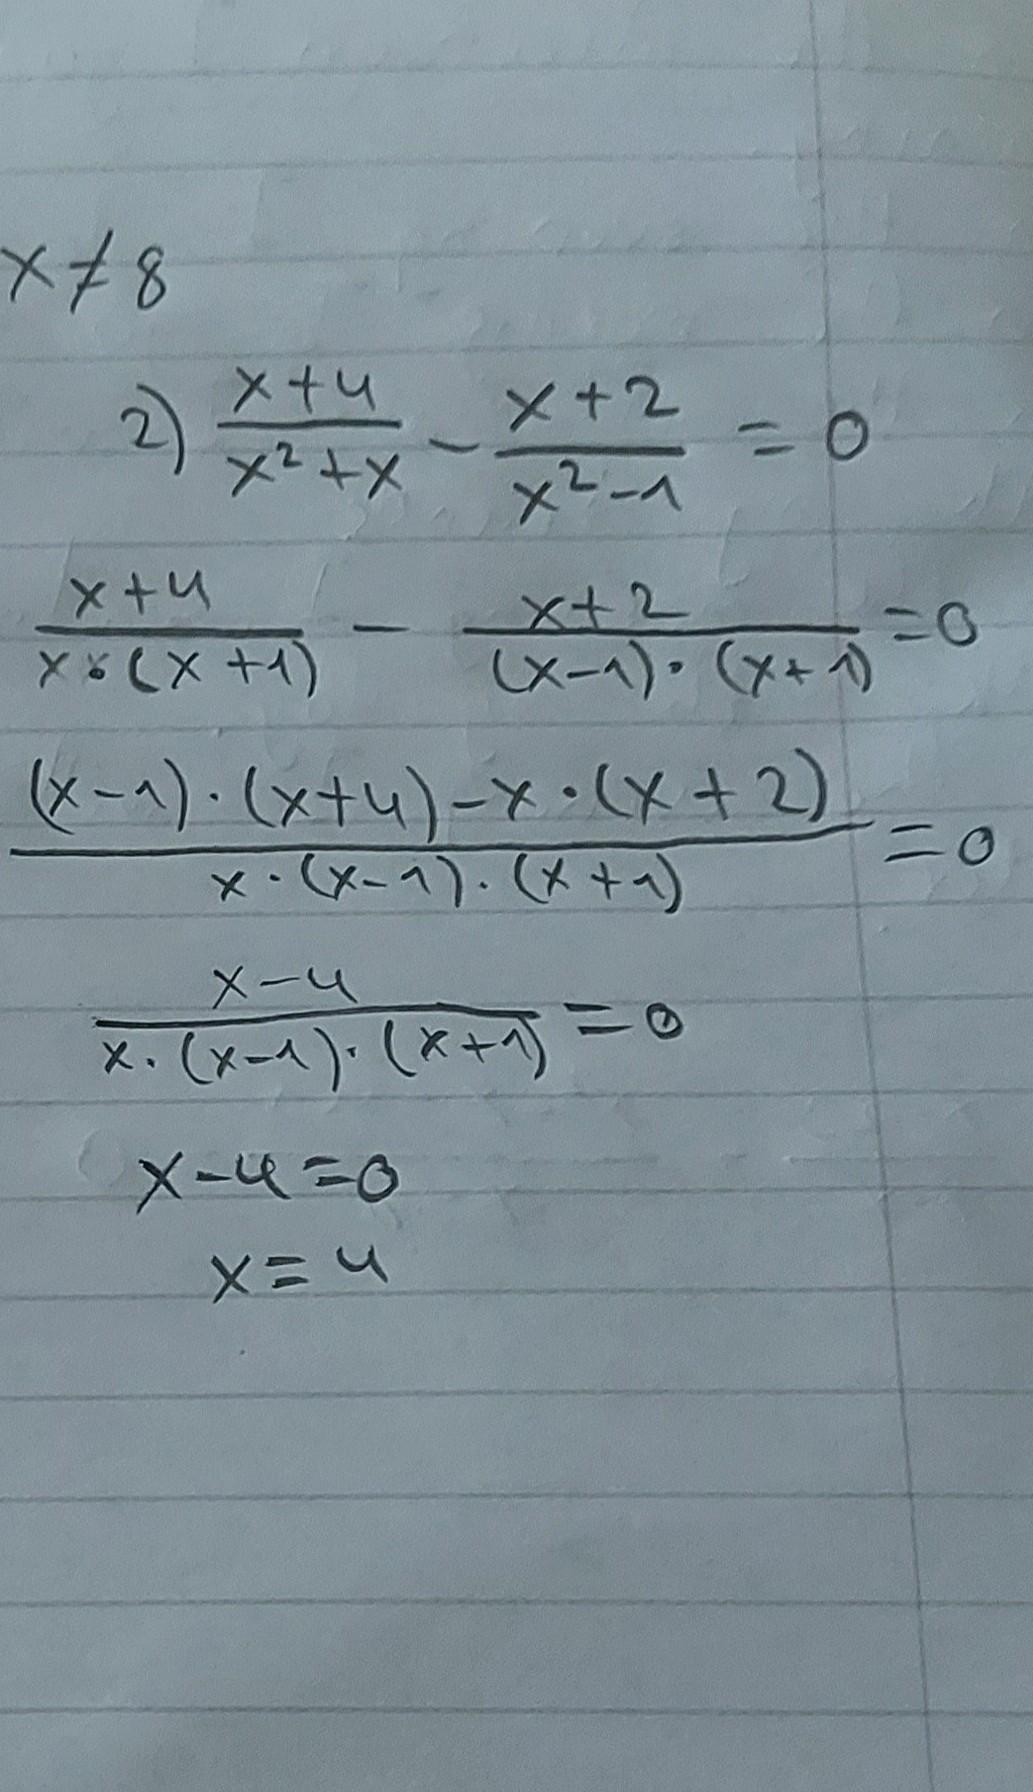 x ≠ 8
2) (x+4)/(x²+x) - (x+2)/(x²-1) = 0
(x+4)/(x·(x+1)) - (x+2)/((x-1)·(x+1)) = 0
((x-1)·(x+4)-x·(x+2))/(x·(x-1)·(x+1)) = 0
(x-4)/(x·(x-1)·(x+1)) = 0
x-4=0
x=4